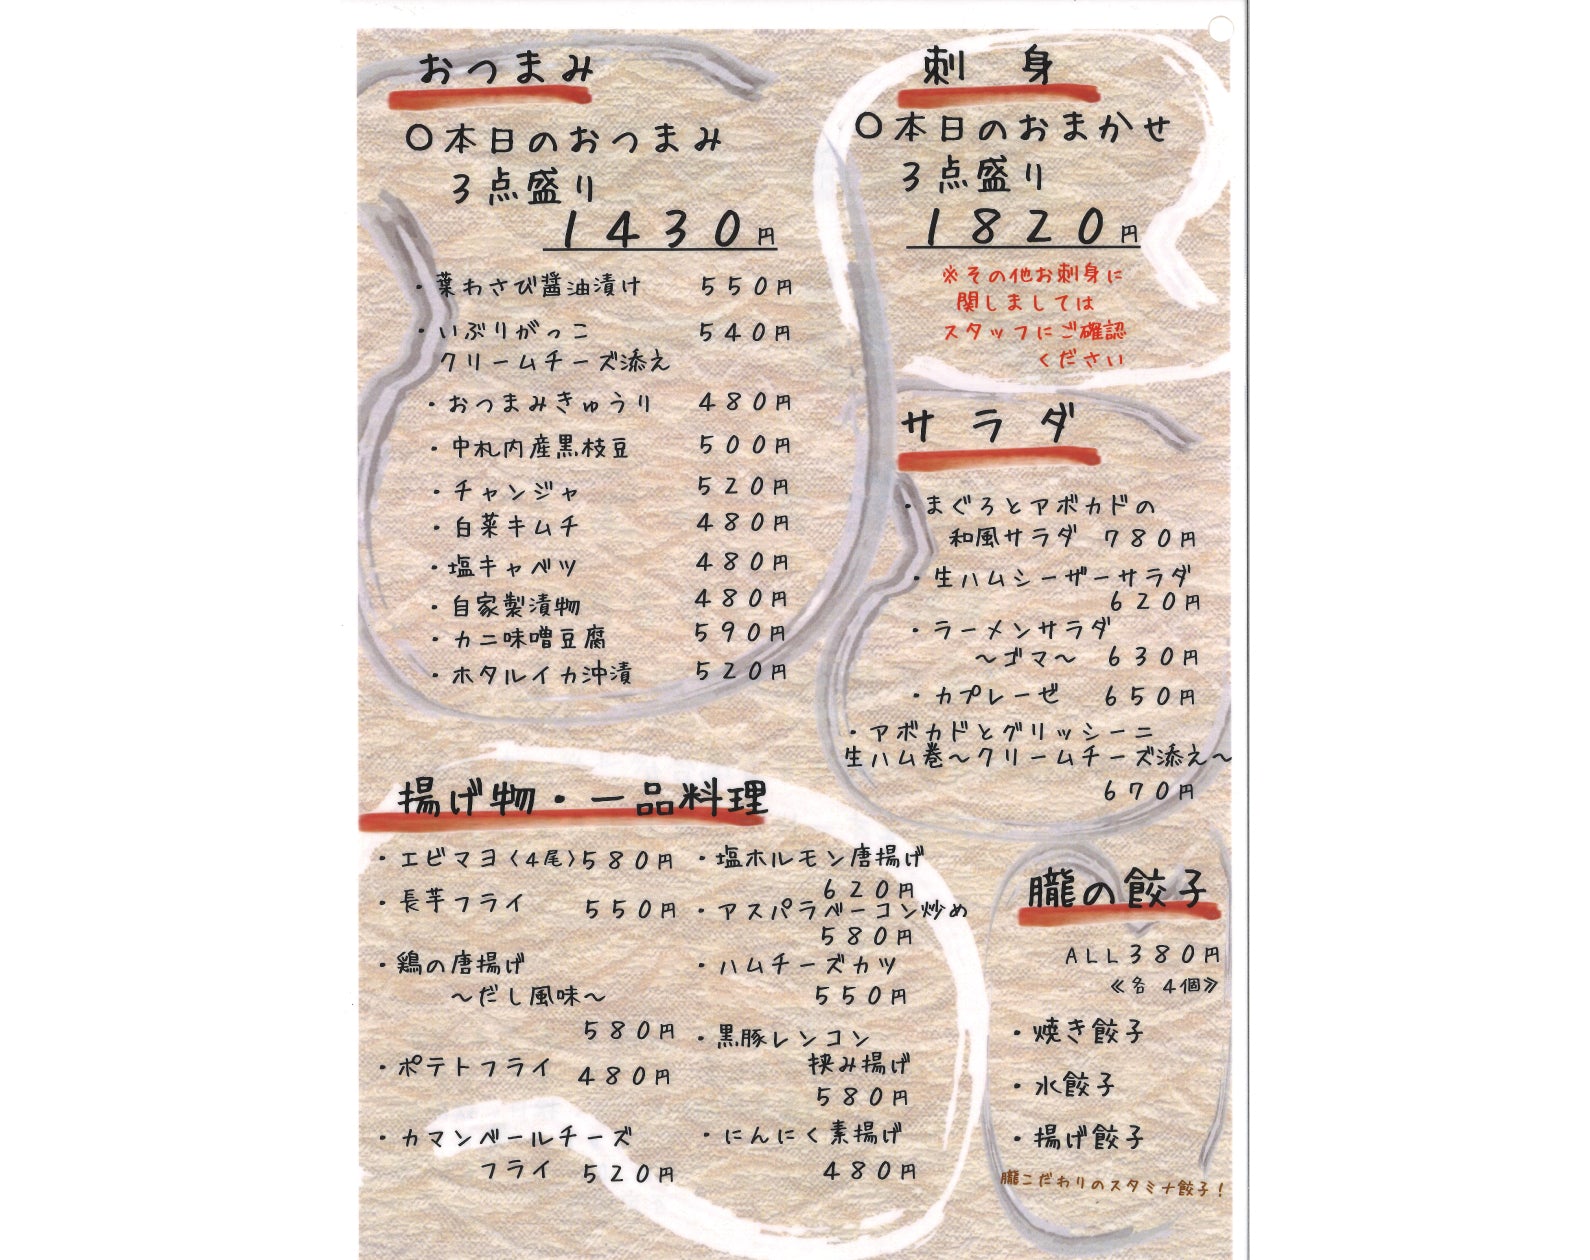 おつまみ
〇本日のおつまみ
3点盛り
1430円
・葉わさび醤油漬け 550円
・いぶりがっこ 540円
クリームチーズ添え
・おつまみきゅうり 480円
・中札内産黒枝豆 500円
・チャンジャ 520円
・白菜キムチ 480円
・塩キャベツ 480円
・自家製漬物 480円
・カニ味噌豆腐 590円
・ホタルイカ沖漬 520円
刺身
〇本日のおまかせ
3点盛り
1820円
※その他お刺身に
関しましては
スタッフにご確認
ください
サラダ
・まぐろとアボカドの
和風サラダ 780円
・生ハムシーザーサラダ
620円
・ラーメンサラダ
～ゴマ～ 630円
・カプレーゼ 650円
・アボカドとグリッシーニ
生ハム巻～クリームチーズ添え～
670円
揚げ物・一品料理
・エビマヨ〈4尾〉580円
・長芋フライ 550円
・鶏の唐揚げ
～だし風味～
580円
・ポテトフライ 480円
・カマンベールチーズ
フライ 520円
・塩ホルモン唐揚げ
620円
・アスパラベーコン炒め
580円
・ハムチーズカツ
550円
・黒豚レンコン
挟み揚げ
580円
・にんにく素揚げ
480円
朧の餃子
ALL380円
≪各 4個≫
・焼き餃子
・水餃子
・揚げ餃子
朧こだわりのスタミナ餃子！